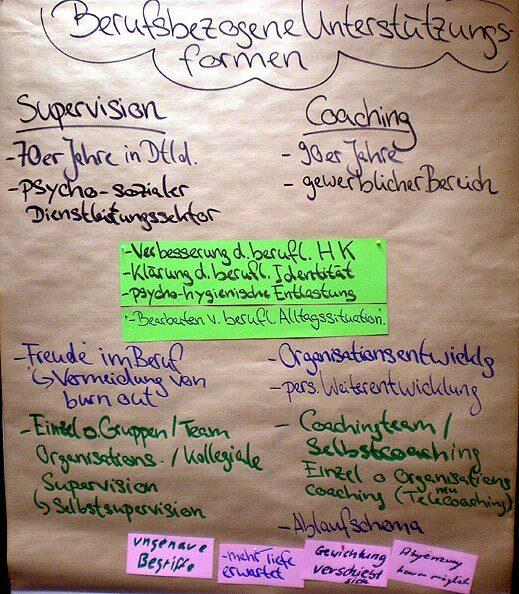 Berufsbezogene Unterstützungs-
formen
Supervision
- 70er Jahre in Dtld.
- psycho-sozialer
Dienstleistungssektor
Coaching
- 90er Jahre
- gewerblicher Bereich
- Verbesserung d. berufl. HK
- Klärung d. berufl. Identität
- psycho-hygienische Entlastung
- Bearbeiten v. berufl. Alltagssituation.
- Freude im Beruf
↳ Vermeidung von
burn out
- Einzel o. Gruppen / Team
Organisations- / Kollegiale
Supervision
↳ Selbstsupervision
- Organisationsentwicklg
- pers. Weiterentwicklung
- Coachingteam /
Selbstcoaching
Einzel o Organisations
coaching (neu Telecoaching)
- Ablaufschema
ungenaue
Begriffe
- mehr tiefe
erwartet
Gewichtung
verschiebt
sich
Abgrenzung
kaum möglich